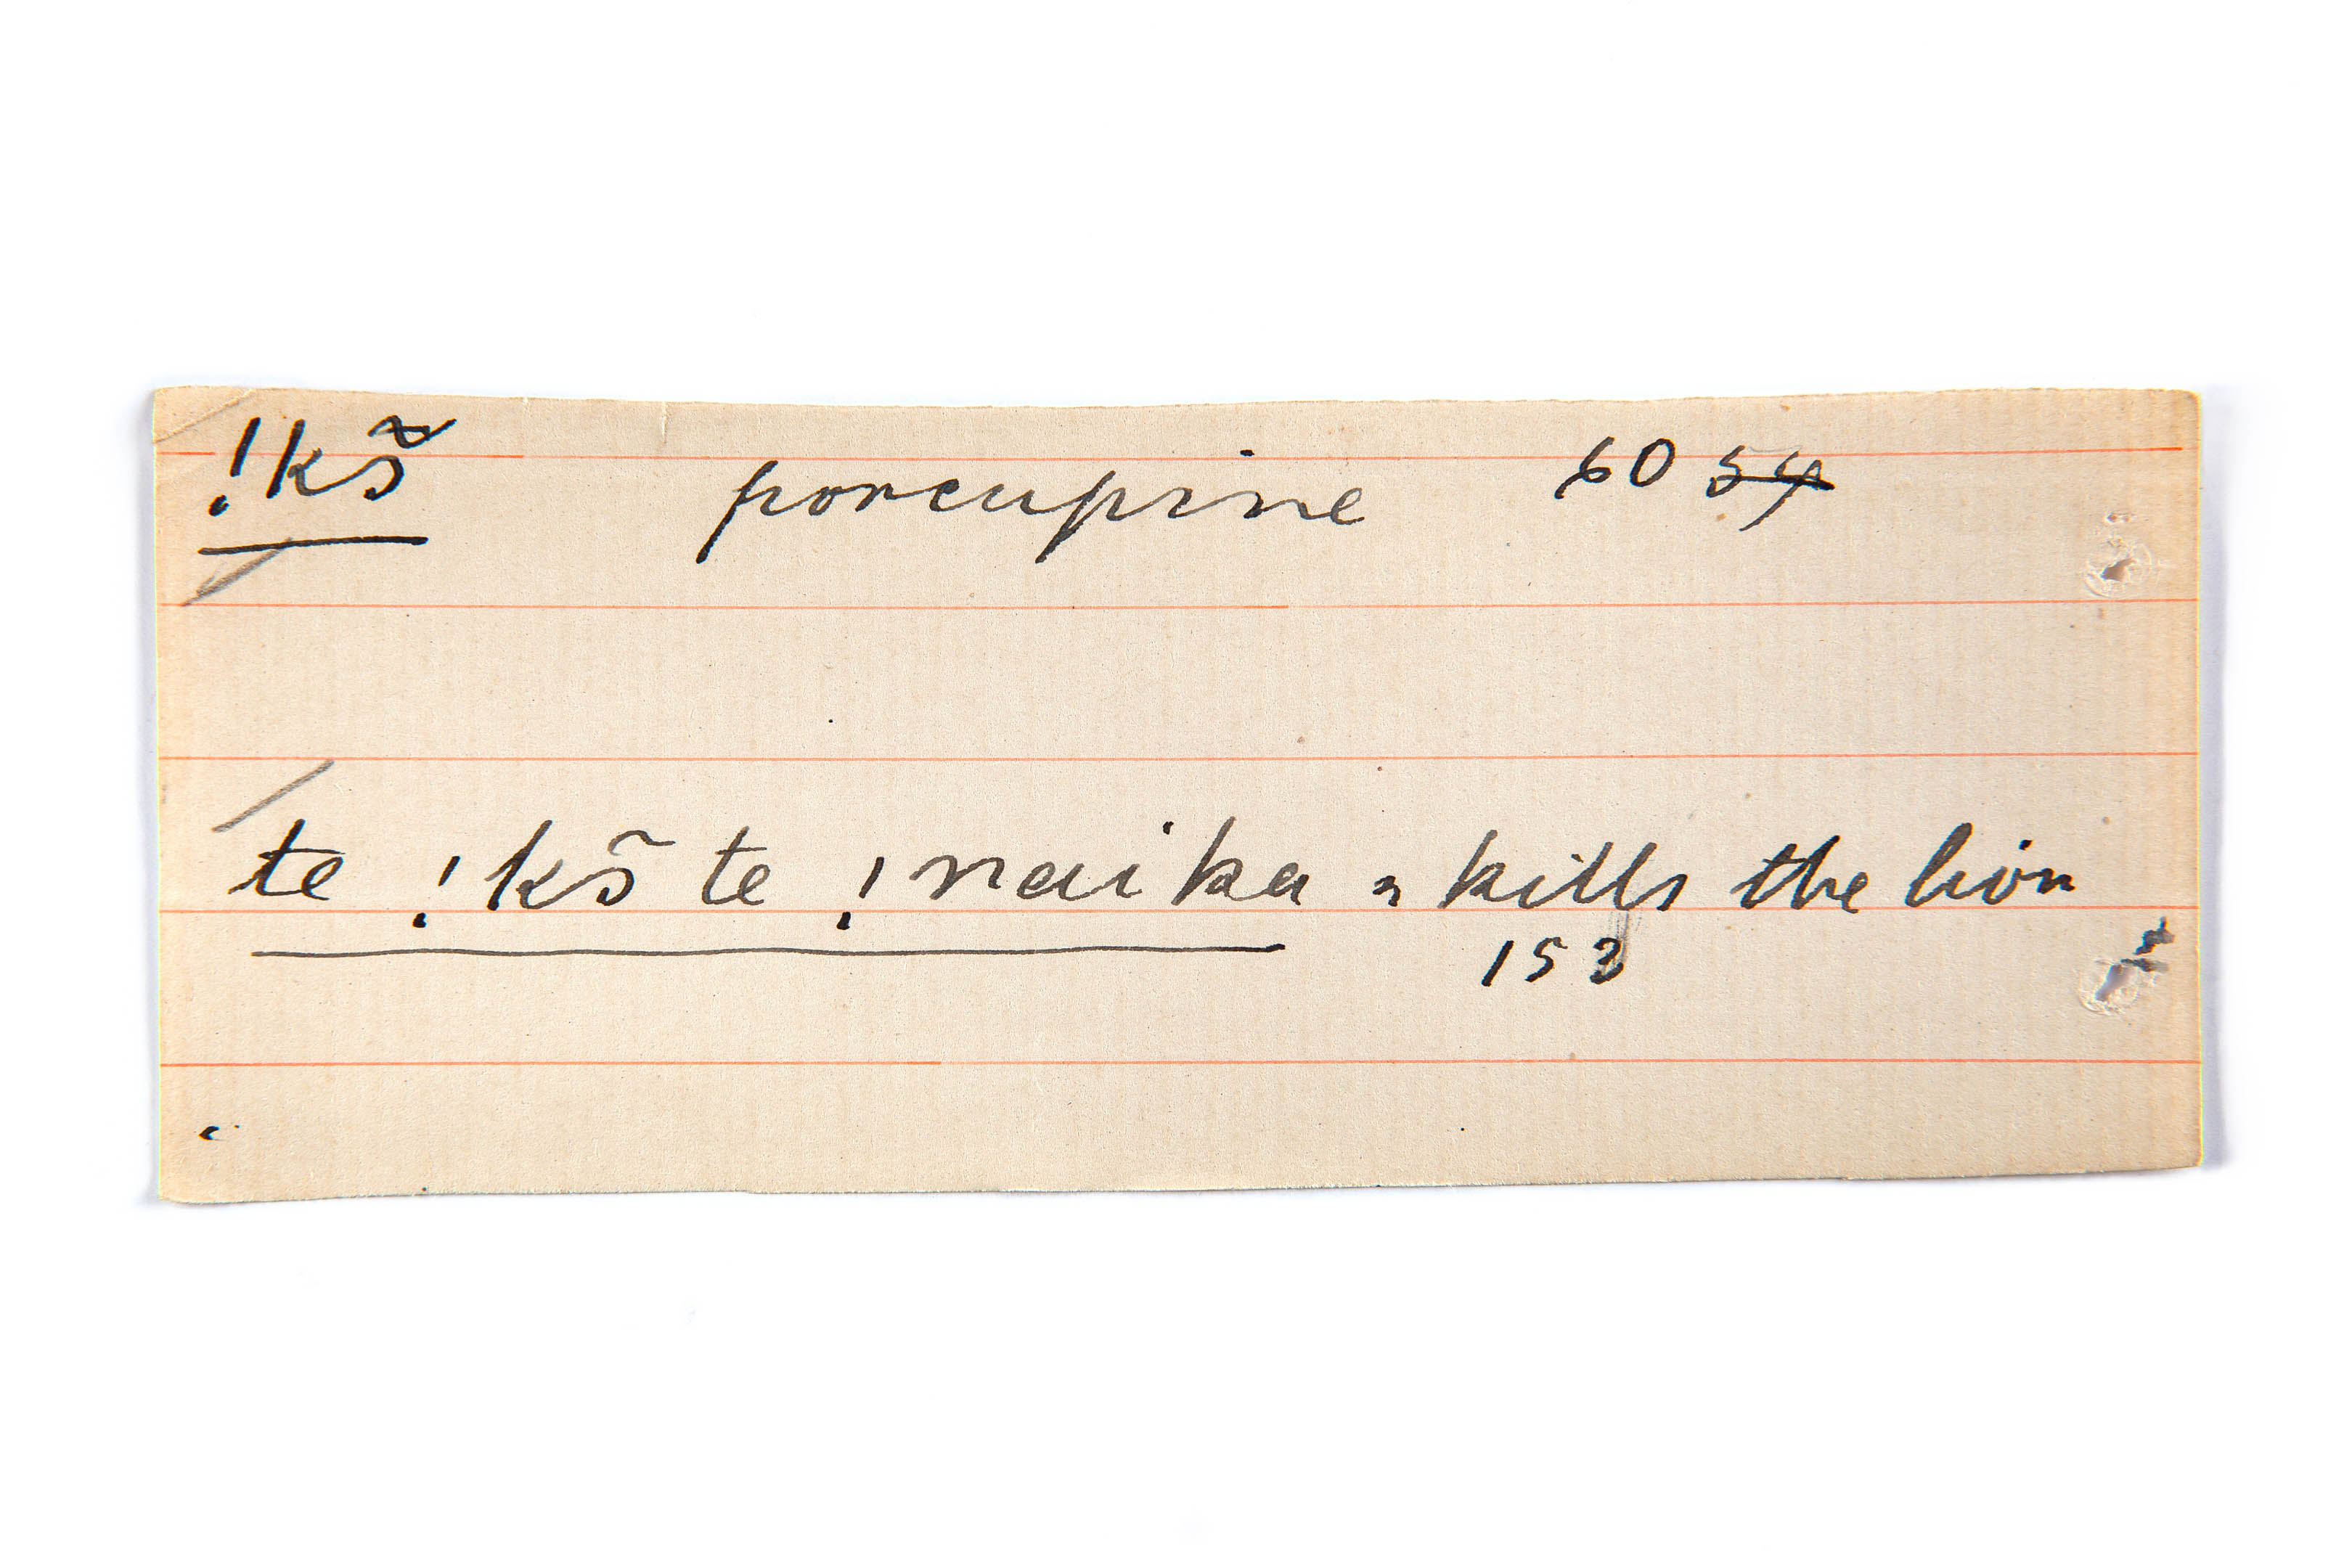 !kš porcupine 60 54
te !kš te !naika = kills the lion
153